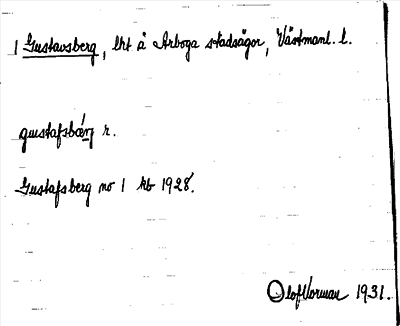 1 Gustavsberg, lht å Arboga stadsägor, Västmanl. l.
gustafsbærj r.
Gustafsberg no 1 kb 1928.
Olof Norman 1931.